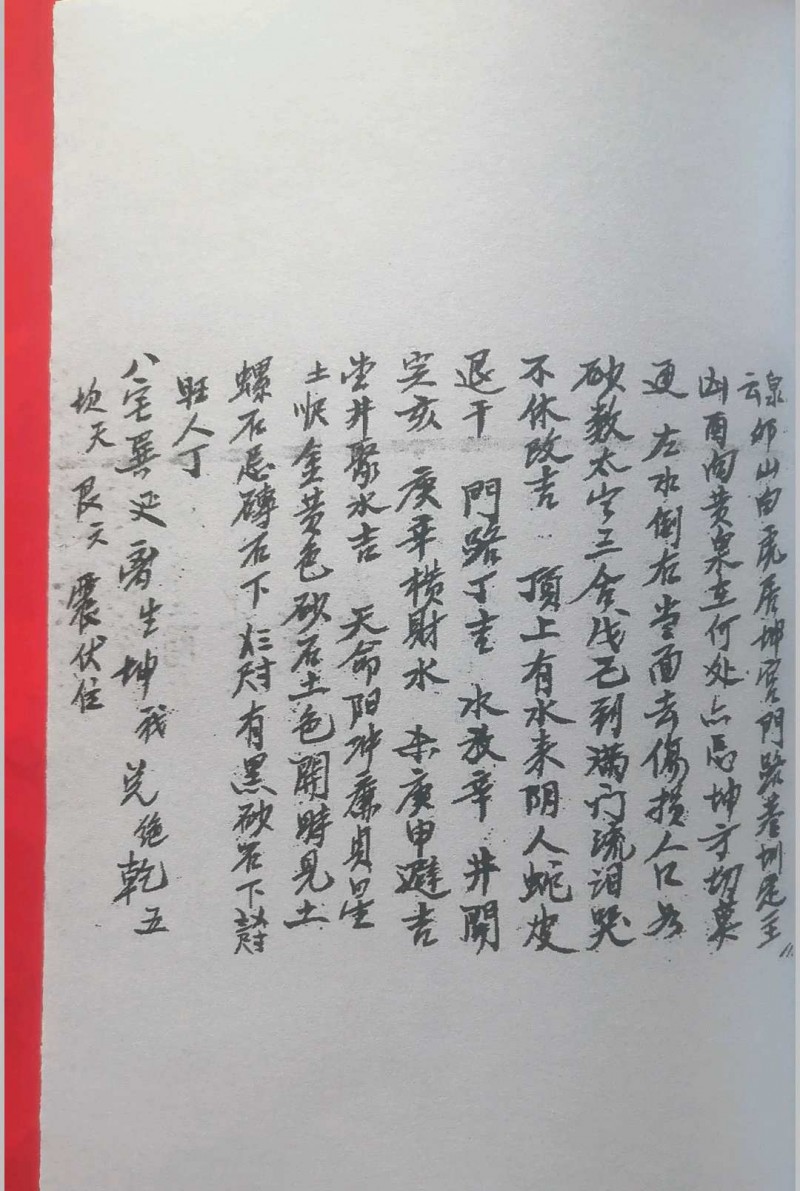 泉云卯山白虎居坤宫門路巷圳定主
凶酉向黄泉在何处占忌坤方切莫
通 左水倒右堂面去傷損人口为
砂数太岁三合戊己到满门流泪哭
不休改吉 頂上有水来阴人蛇皮
退干 門路丁吉 水放辛 井開
亥 庚辛横財水 未庚申避吉
堂井聚水吉 天命阳冲廉貞星
土 金黄色砂石土色開時見土
螺石忌磚石下 尺 有黑砂石下 尺
旺人丁
八宅巽延 生坤我兑绝乾五
坎天艮六震伏位